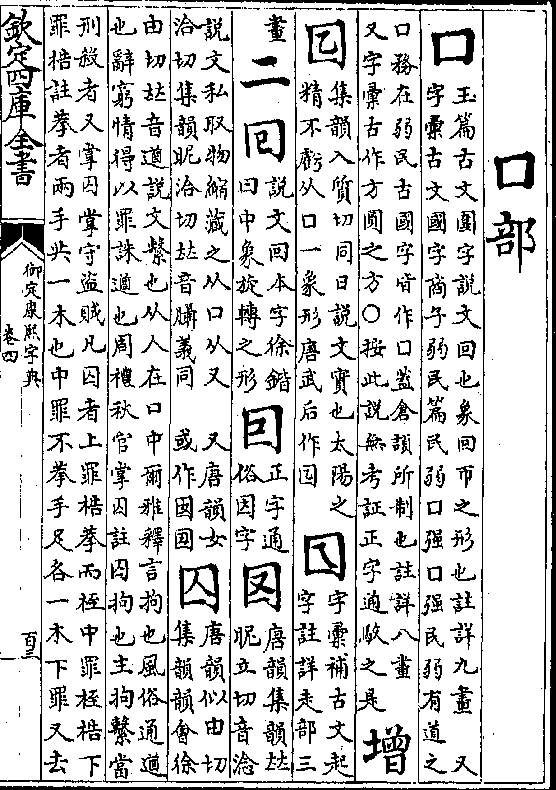 囗部
囗
玉篇古文圍字說文回也象回帀之形也註詳九畫　又
字彙古文國字商子弱民篇民弱囗强囗强民弱有道之
囗務在弱民古國字皆作囗蓋倉頡所制也註詳八畫
又字彙古作方圓之方○按此說無考証正字通駮之是
增
𡆠
集韻入質切同日說文實也太陽之
精不虧从囗一象形唐武后作
字彙補古文起
字註詳走部三
畫
二
囘
說文回本字徐鍇
曰中象旋轉之形
囙
正字通
俗因字
㘝
唐韻集韻𠀤
昵立切音淰
說文私取物縮藏之从囗从又
洽切集韻昵洽切𠀤音義同
又唐韻女
或作
囚
唐韻似由切
集韻韻會徐
由切𠀤音遒說文繫也从人在囗中爾雅釋言拘也風俗通遒
也辭窮情得以罪誅遒也周禮秋官掌囚註囚拘也主拘繫當
刑殺者又掌囚掌守盜賊凡囚者上罪梏拲而桎中罪桎梏下
罪梏註拲者兩手共一木也中罪不拲手足各一木下罪又去
欽定四庫全書
御定康熙字典
卷四